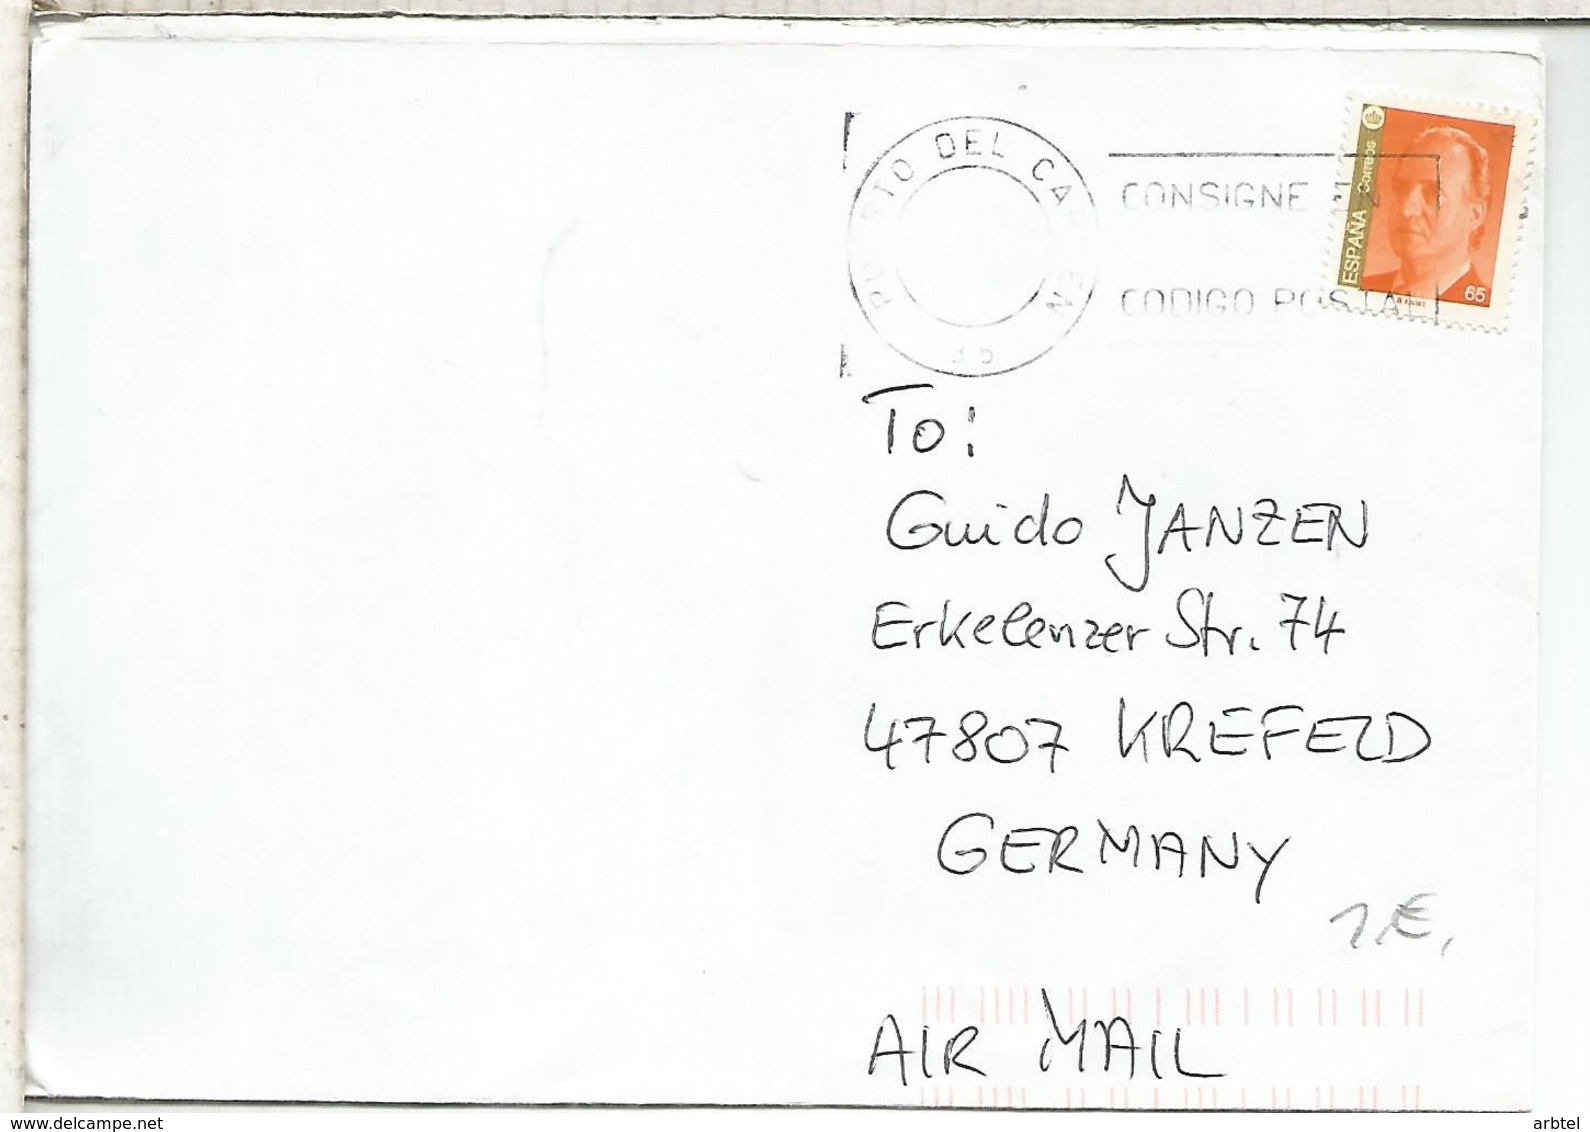 PUERTO DEL CARMEN
35
CONSIGNE
CODIGO POSTAL
ESPAÑA Correos
65
To:
Guido JANZEN
Erkelenzer Str. 74
47807 KREFELD
GERMANY
1,€,
AIR MAIL
www.delcampe.net
arbtel